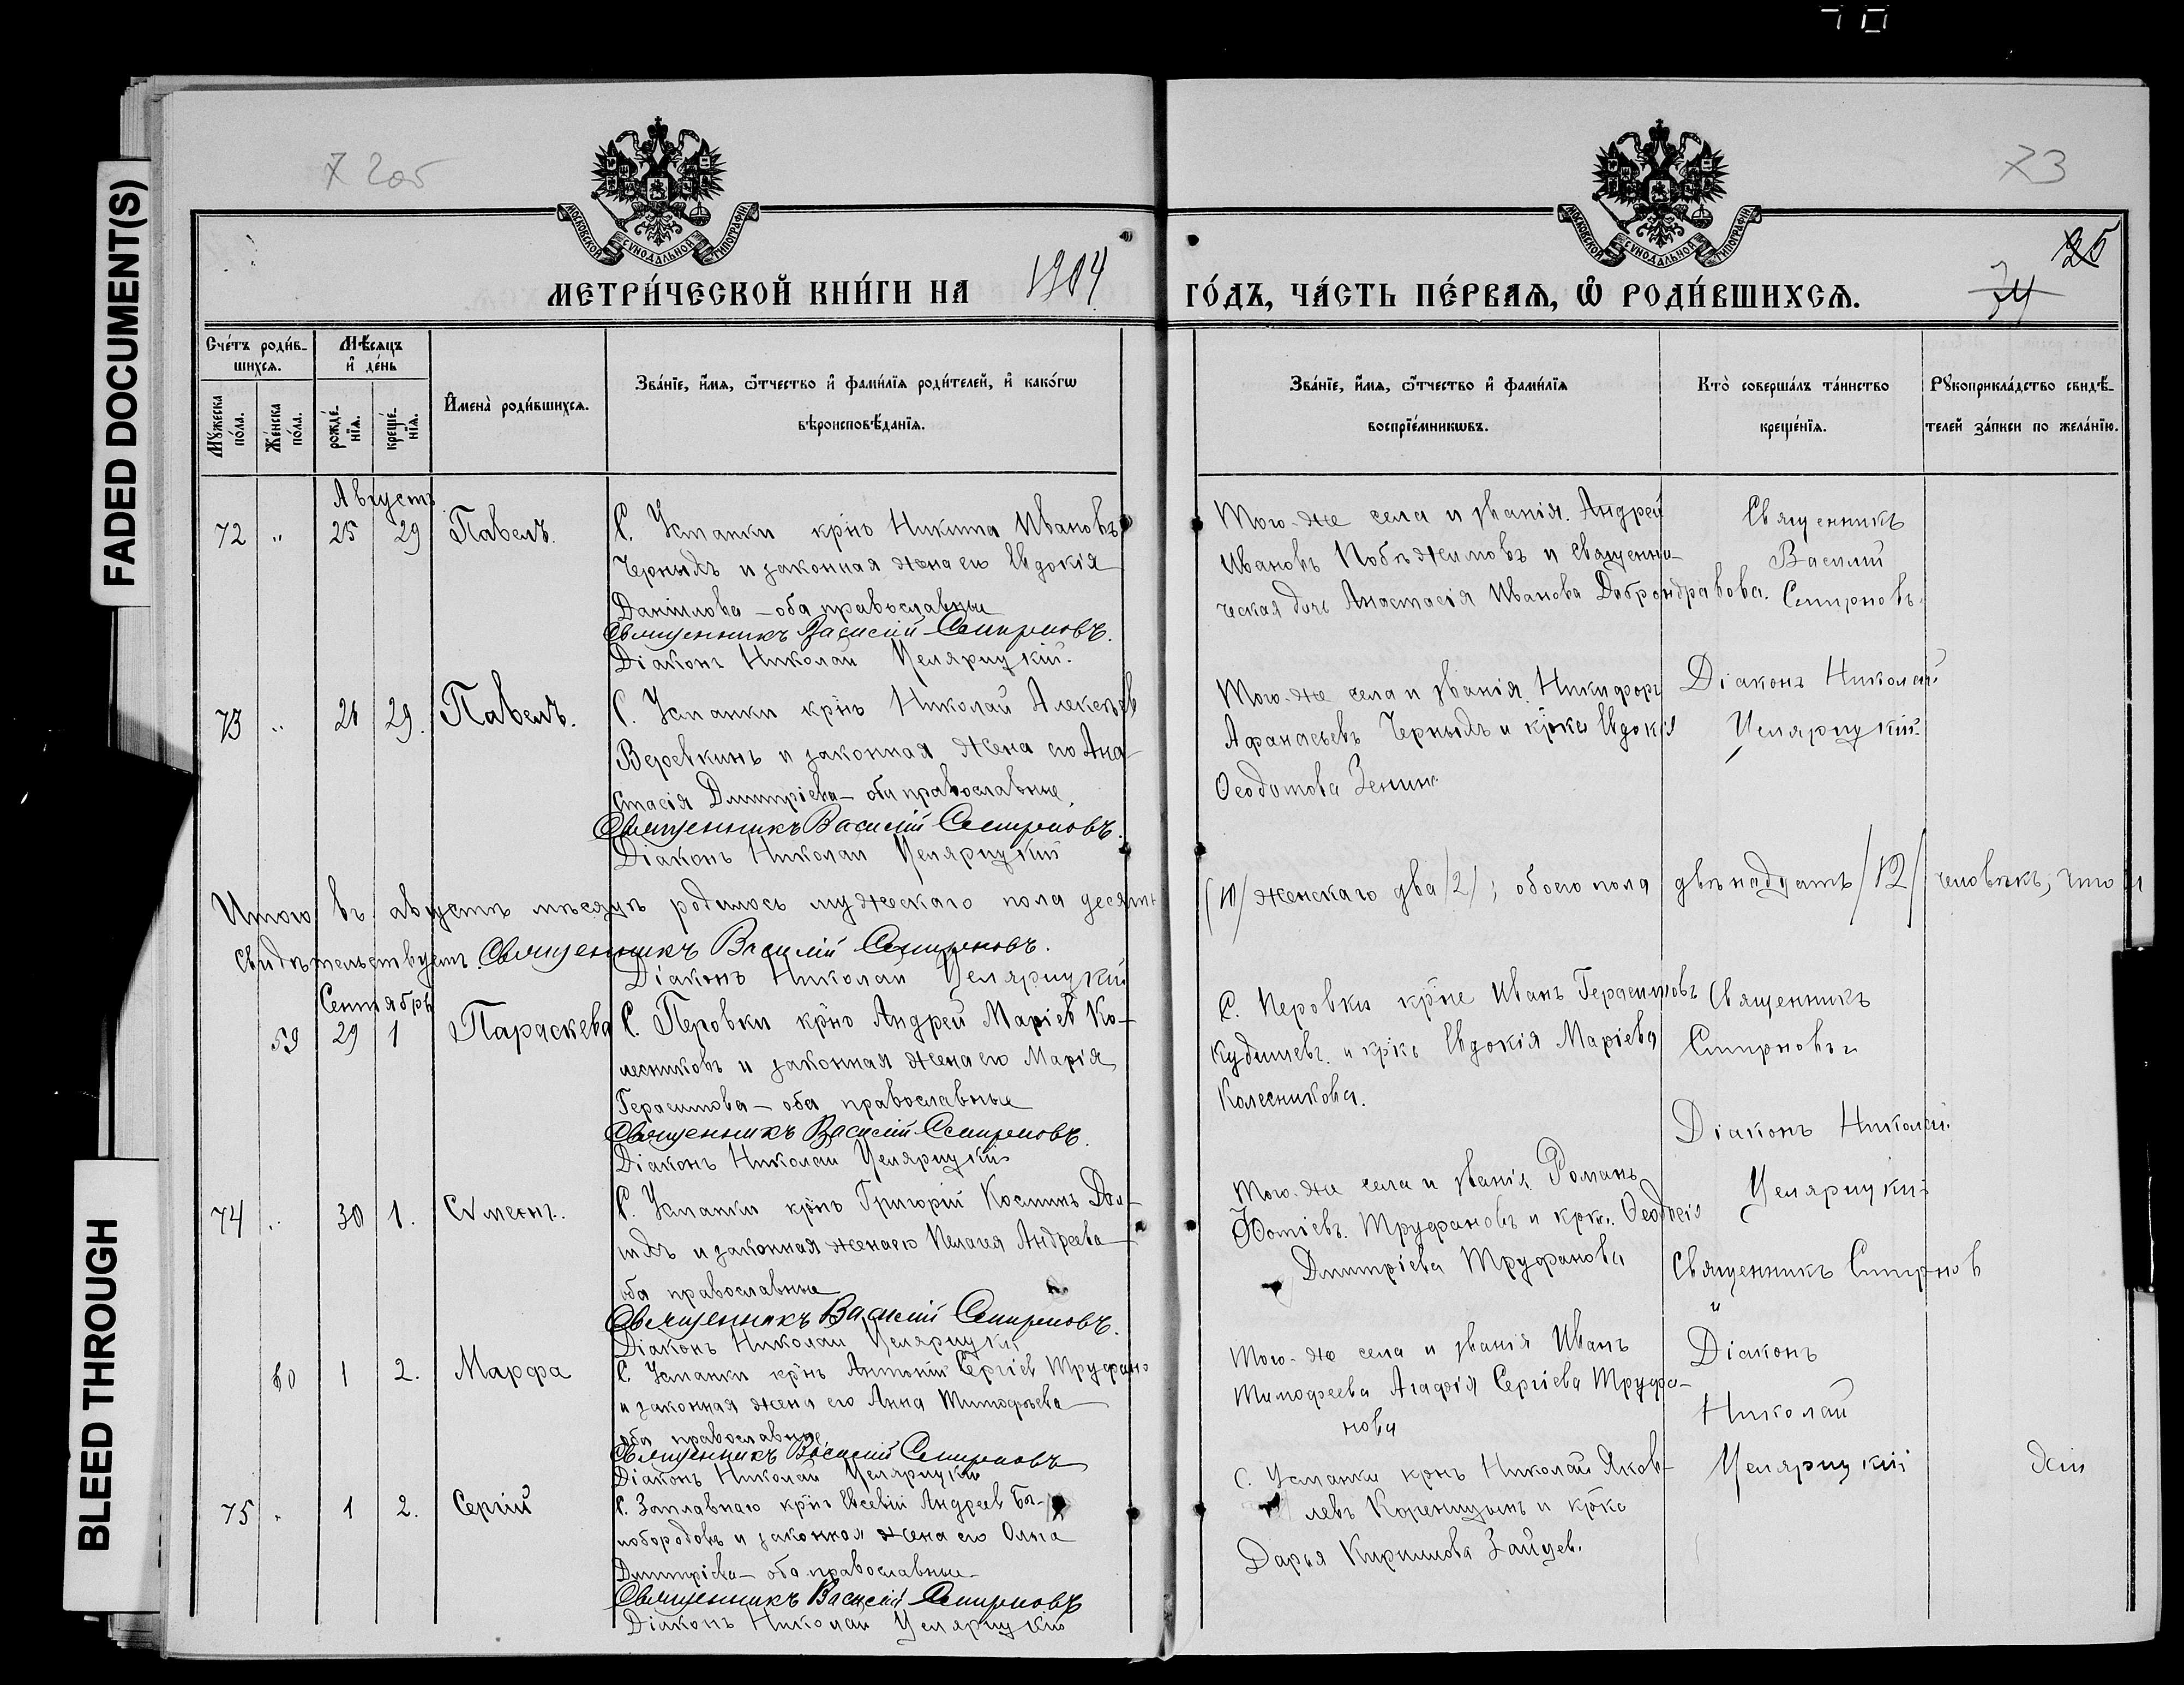 70
FADED DOCUMENT(S)
BLEED THROUGH
73
25
74
МОСКОВСКОЙ СѴНОДАЛЬНОЙ ТИПОГРАФІИ
МОСКОВСКОЙ СѴНОДАЛЬНОЙ ТИПОГРАФІИ
МЕТРИ́ЧЕСКОЙ КНИ́ГИ НА 1904 ГО́ДЪ, ЧА́СТЬ ПЕ́РВАѦ, Ѡ҆ РОДИ́ВШИХСѦ.
Сче́тъ роди́в-
шихсѧ.
Мѣ́сѧцъ
и҆ де́нь
Мꙋ́жеска
по́ла.
Же́нска
по́ла.
рожде́-
нїѧ.
креще́-
нїѧ.
И҆мена̀ роди́вшихсѧ.
Зва́нїе, и҆́мѧ, ѻ҆́тчество и҆ фами́лїѧ роди́телей, и҆ како́гѡ
вѣроисповѣ́данїѧ.
Зва́нїе, и҆́мѧ, ѻ҆́тчество и҆ фами́лїѧ
воспрїе́мникѡвъ.
Кто̀ соверша́лъ та́инство
креще́нїѧ.
Рꙋкоприкла́дство свидѣ́-
телей за́писи по жела́нїю.
Августъ
72 " 25 29 Павелъ.
С. Усманки крнъ Никита Ивановъ
Черныхъ и законная жена его Евдокія
Даніилова – оба православные
Священникъ Василій Смирновъ.
Діаконъ Николай Целярицкій.
Того-же села и званія. Андрей
Ивановъ Побѣжимовъ и священни-
ческая дочь Анастасія Иванова Добронравова.
Священникъ
Василій
Смирновъ.
73 " 26 29. Павелъ.
С. Усманки крнъ Николай Алексѣев
Веревкинъ и законная жена его Ана-
стасія Дмитріева – оба православные
Священникъ Василій Смирновъ.
Діаконъ Николай Целярицкій
Того-же села и званія Никифоръ
Афанасьевъ Черныхъ и крка Евдокія
Ѳеодотова
Діаконъ Николай
Целярицкій
Итого въ августѣ мѣсяцѣ родилось мужескаго пола десять (10) женскаго два (2); обоего пола двѣнадцать (12) человѣкъ, что и
свидѣтельствуемъ. Священникъ Василій Смирновъ.
Діаконъ Николай Целярицкій
Сентябрь
59 29 1 Параскева
С. Перовки крнъ Андрей Маріев Ко-
лесниковъ и законная жена его Марія
Герасимова – оба православные
Священникъ Василій Смирновъ.
Діаконъ Николай Целярицкій
С. Перовки крне Иванъ Герасимовъ
и крка Евдокія Маріева
Колесникова.
Священникъ
Смирновъ и
Діаконъ Николай
Целярицкій
74 " 30 1. Сѵмеонъ.
С. Усманки крнъ Григорій Косминъ Дол-
гихъ и законная жена его Пелагея Андреева
оба православные
Священникъ Василій Смирновъ.
Діаконъ Николай Целярицкій
Того-же села и званія Романъ
Фотіевъ Труфановъ и крка
Дмитріева Труфанова
Священникъ Смирнов
и
Діаконъ
Николай
Целярицкій
60 1 2. Марфа
С. Усманки крнъ Антоній Сергіев Труфано
и законная жена его Анна Тимофѣева
оба православные
Священникъ Василій Смирновъ
Діаконъ Николай Целярицкій
Того-же села и званія Иванъ
Тимофеева Агафія Сергіева Труфа-
нова
75 " 1 2. Сергій
С. Заплавнаго крнъ Евсевій Андреев Бѣ-
лобородовъ и законная жена его Олна
Дмитріева – оба православные
Священникъ Василій Смирновъ
Діаконъ Николай Целярицкій
С. Усманки крнъ Николай Яков-
левъ и крка
Дарья Кирилова Зайцев.